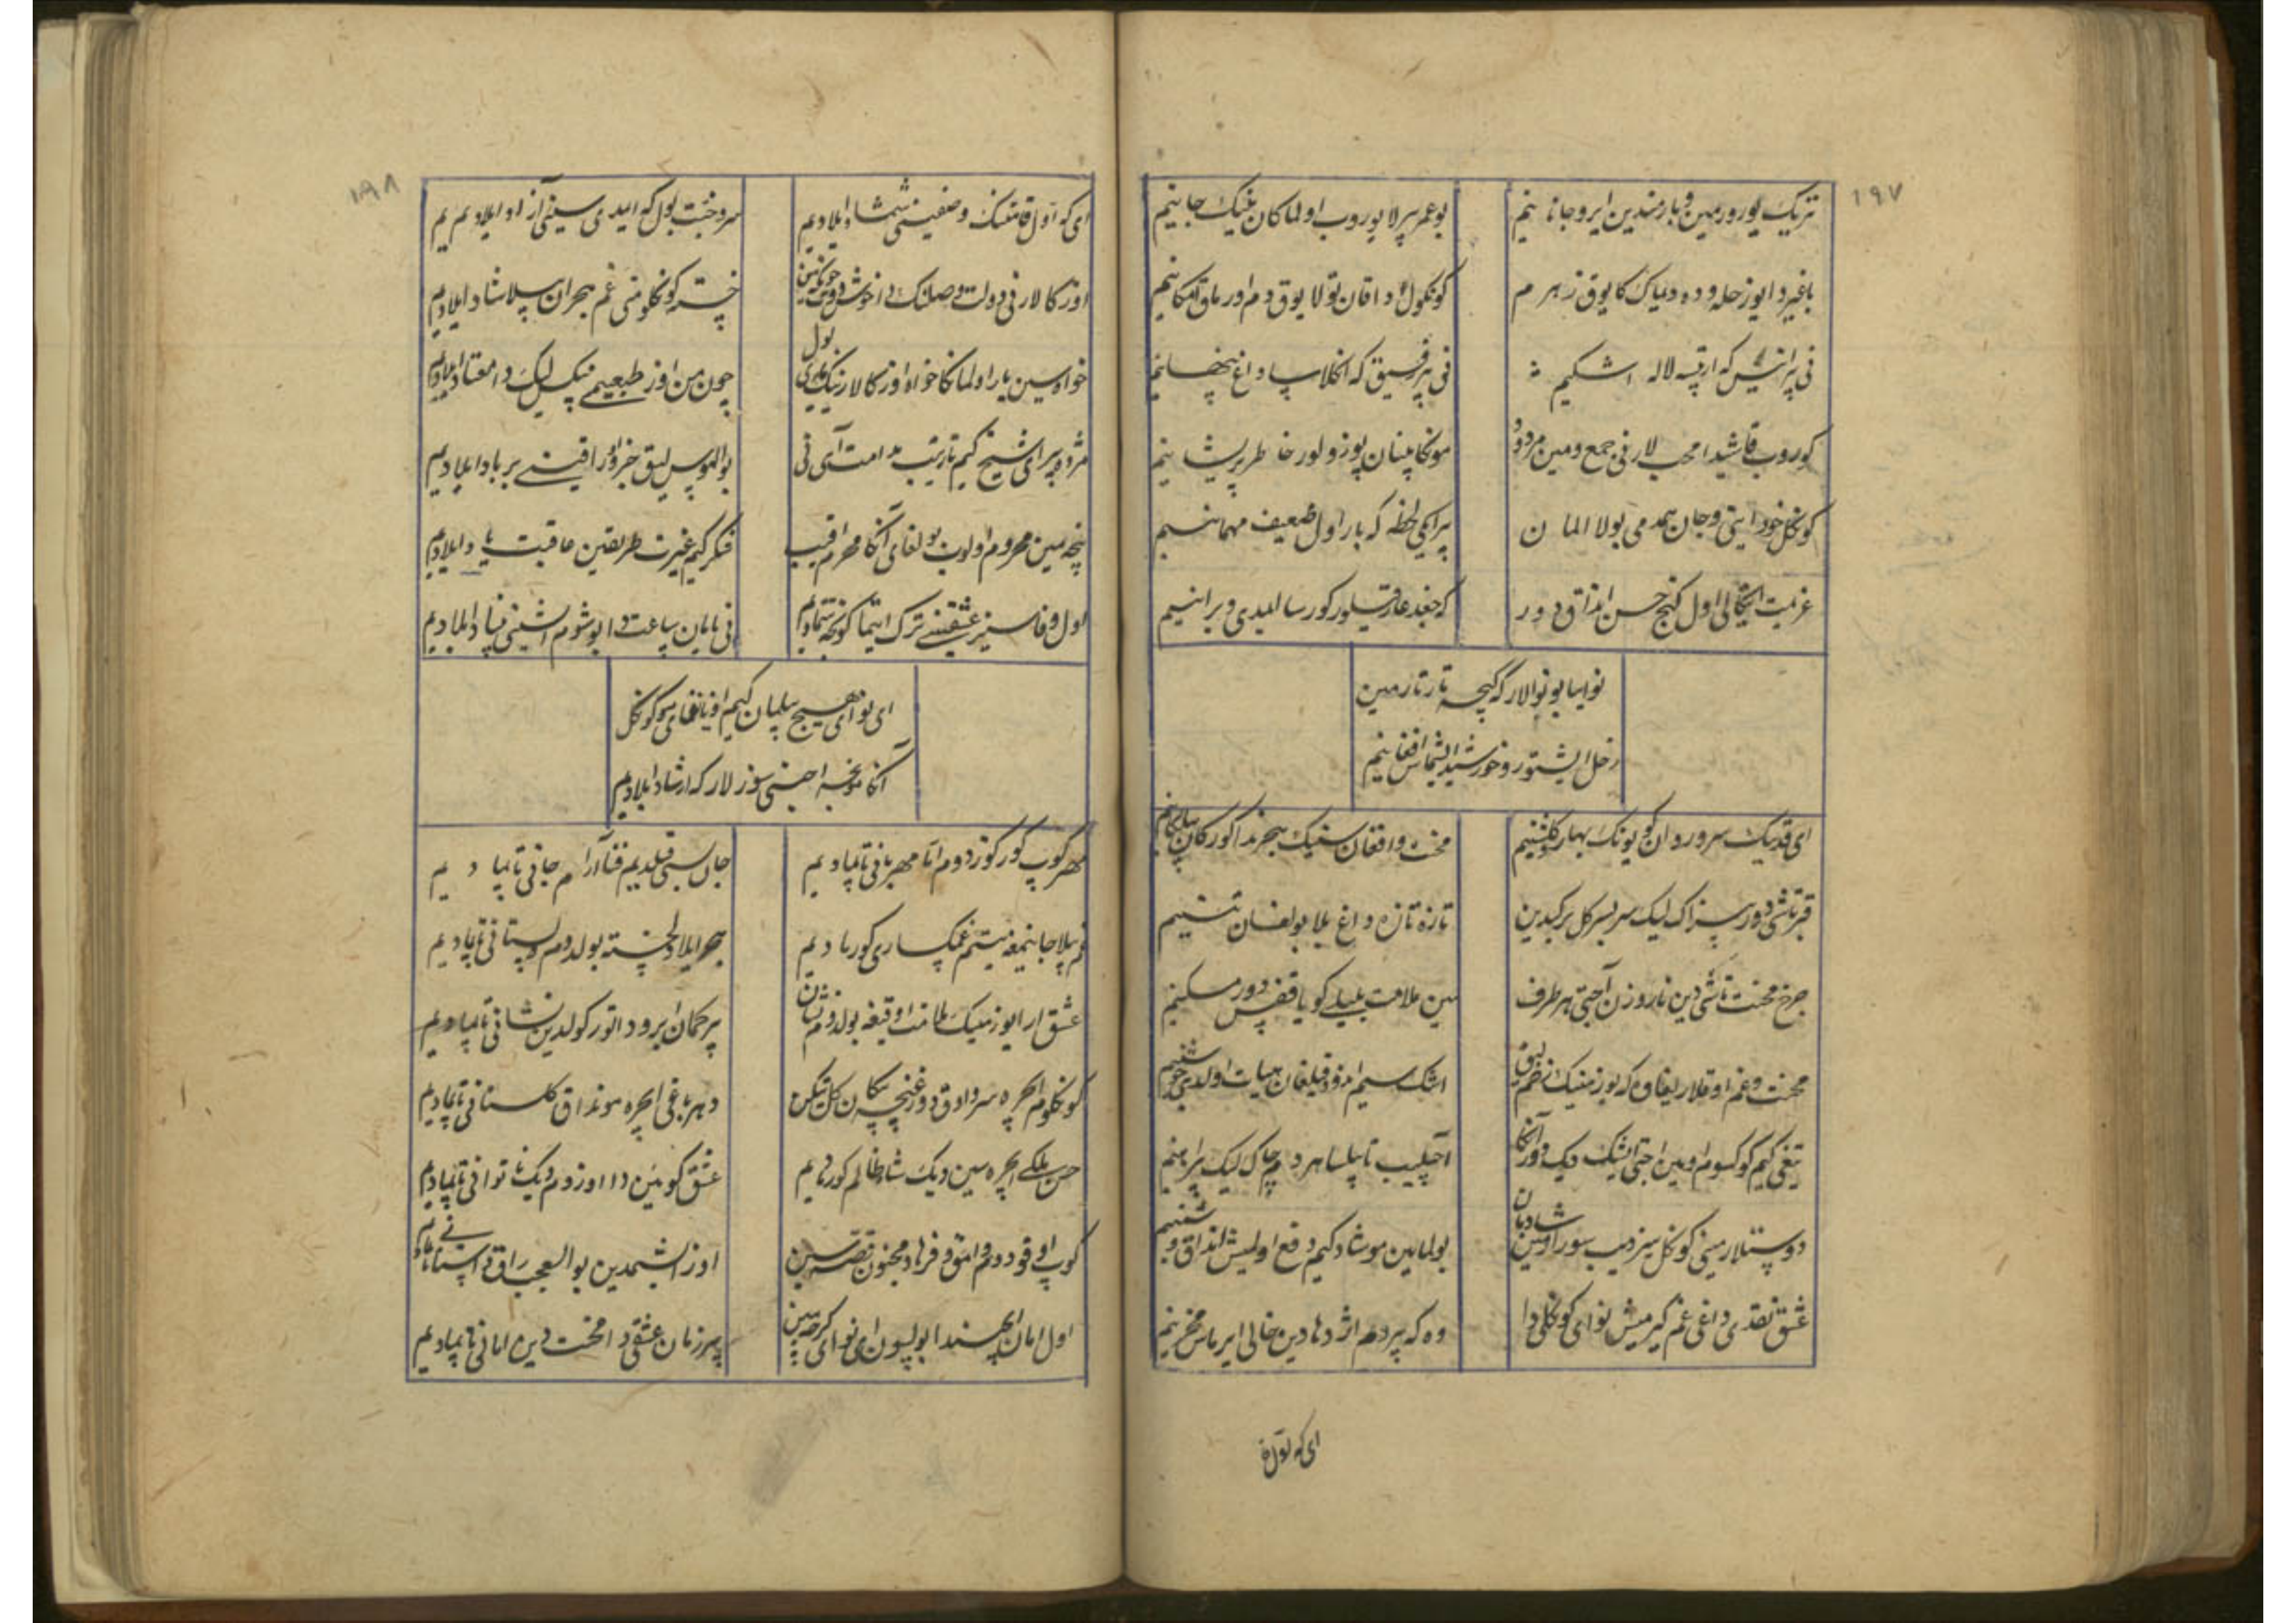 ۱۹۷
تریک یورورمین و یارمندین ایرو جانانیم
بو عمر بیرلا یوروب اولماکان مینیک جانیم
باغیردا یوز حله و ده دیماک کا یوق زهرم
کونکول دا قان تولا یوق دم اورماق امکانیم
نی بیر انیس که ارتیسه لاله اشکیم
نی بیر رفیق که انکلاسا داغ پنهانیم
کوروب قاشیدا محب لارنی جمع و مین مردود
مونکا پنان یوزولور خاطر پریشانیم
کونکل خود ایتی و جان همدمی بولا الما ن
بیر ایکی لحظه که بار اول ضعیف مهمانیم
عزیمت ایتکالی اول کنج حسن انداق دور
که جغد عار قیلور کورسا ایمدی ویرانیم
نوایا بو نوالار که کیچه تارتارمین
زحل ایشیتور و خورشید ایشیتماس افغانیم
ای قدینک سرو روان کویونک بهار کلشنیم
محنت و افغان سنینک هجرینکدا کورکان
قبر تاشی دور سیزاک لیک سر بسر کل برکیدین
تازه تازه داغ بیلا بولغان تنیم
چرخ محنت تاشی دین ناروزن آچتی هر طرف
مین ملامت بلبلی کویا قفس دور مسکنیم
محنت و غم اوقلاری غاوه که یوز مینک زخم
اشک سیم اندود قیلغان هیات اولدی جوشنیم
تیغی کیم کوکسوم اوین آچتی ایشیک دیک دور آنکا
آچیلیب یاپیلسا هر دم چاک لیک پیراهنیم
دوستلار مینی کونکل سیزدیب سوراورسن شادمان
بولمایین مو شاد کیم دفع اولمیش انداق دشمنیم
عشق نقدی داغی غم کیرمیش نوای کونکلی دا
وه که بیر دم اژدهادین خالی ایرماس مخزنیم
ای که اول
۱۹۸
ای که اول قامتنک وصفینی شمشاد ایلادیم
سرو خجت بول که ایمدی سینی آزاد ایلادیم
اوزکالارنی دولت وصلنک دا خوش
خسته کونکلومنی غم هجران بیلا شاد ایلادیم
خواه سین یار اولماکا خواه اوزکالارنینک یاری بول
چون من اوز طبعیمنی مینک لیک دا معتاد ایلادیم
مژده بیر ای شیخ کیم تارتیب ندامت آهی نی
بوالهوس لیق جزو اوراقینی برباد ایلادیم
نیچه مین محروم اولوب بولغای آنکا محرم رقیب
فکر کیم غیرت طریقین عاقبت یاد ایلادیم
اول وفاسیز عشقینی ترک ایتماکونکچه تینمادیم
نی یامان ساعت دا بو شوم ایشنی بنیاد ایلادیم
ای نوای هیچ بیلمان کیم اویانغای مو کونکل
آنکا مونجه اجیغ سوزلار که ارشاد ایلادیم
مهر کوب کورکوزدوم اتا مهربانی تاپمادیم
جان بسی قیلدیم فدا آرام جانی تاپمادیم
غم بیلا جانیمغه یتیم غمکساری کورمادیم
هجر ایلا دلخسته بولدوم دلستانی تاپمادیم
عشق ار ایوزمینک ملامت اوقیغه بولدوم نشان
بیر کمان ابرودا تورکولدین نشانی تاپمادیم
کونکلوم ایچره سرو اوق دور غنچه پیکان کل تیکن
دهر باغی ایچره مونداق کلستانی تاپمادیم
حسن ملکی ایچره سین دیک شاه ظالم کورمادیم
عشق کویین دا اوزوم دیک ناتوانی تاپمادیم
کوب اوقودوم وامق و فرهاد و مجنون قصه سین
اوز ایشیمدین بوالعجب راق داستانی تاپمادیم
اول امان ایچیندا بولسون ای نوای کرچه سین
بیر زمان عشقی دا محنت دین امانی تاپمادیم